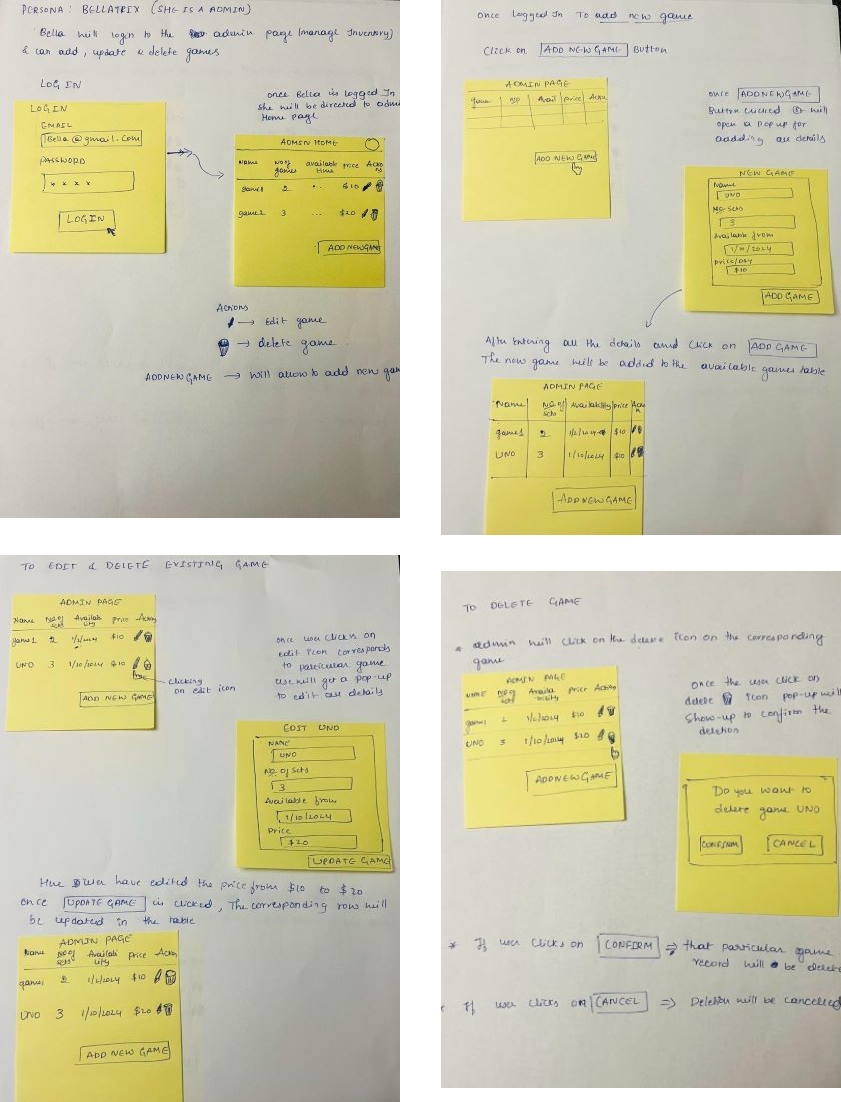 PERSONA: BELLATRIX (SHE IS A ADMIN)
Bella will login to the admin page (manage Inventory)
& can add, update & delete games
LOG IN
LOGIN
EMAIL
Bella @ gmail.com
PASSWORD
x x x x
LOGIN
once Bella is logged In
she will be directed to admi
Home page
ADMIN HOME
Name No of games available time price Actions
game1 2 .. $10
game2 3 ... $20
ADD NEW GAME
Actions
→ Edit game
→ delete game
ADD NEW GAME → will allow to add new gam
Once Logged In To add new game
Click on ADD NEW GAME Button
ADMIN PAGE
game Avail price Action
ADD NEW GAME
once ADD NEW GAME
Button clicked it will
open a pop up for
adding all details
NEW GAME
Name
UNO
No. Sets
3
Available from
1/10/2024
Price/Day
$10
ADD GAME
After Entering all the details and click on ADD GAME
The new game will be added to the available games table
ADMIN PAGE
Name No of sets Availability price Action
game1 2 1/2/2024 $10
UNO 3 1/10/2024 $10
ADD NEW GAME
TO EDIT & DELETE EXISTING GAME
ADMIN PAGE
Name No. of sets Availability price Action
game1 2 1/2/2024 $10
UNO 3 1/10/2024 $10
clicking
on edit icon
ADD NEW GAME
once user clicks on
edit icon corresponds
to particular game
user will get a pop-up
to edit all details
EDIT UNO
NAME
UNO
No. of Sets
3
Available from
1/10/2024
Price
$20
UPDATE GAME
Here user have edited the price from $10 to $20
once UPDATE GAME is clicked, The corresponding row will
be updated in the table
ADMIN PAGE
Name No of sets Availability Price Action
game1 2 1/2/2024 $10
UNO 3 1/10/2024 $20
ADD NEW GAME
TO DELETE GAME
* admin will click on the delete icon on the corresponding
game
ADMIN PAGE
NAME No of sets Availability Price Action
game1 2 1/2/2024 $10
UNO 3 1/10/2024 $20
ADD NEW GAME
once the user click on
delete icon pop-up will
show-up to confirm the
deletion
Do you want to
delete game UNO
CONFIRM CANCEL
* If user clicks on CONFIRM ⇒ that particular game
record will be delet
* If user clicks on CANCEL ⇒ Deletion will be cancelled